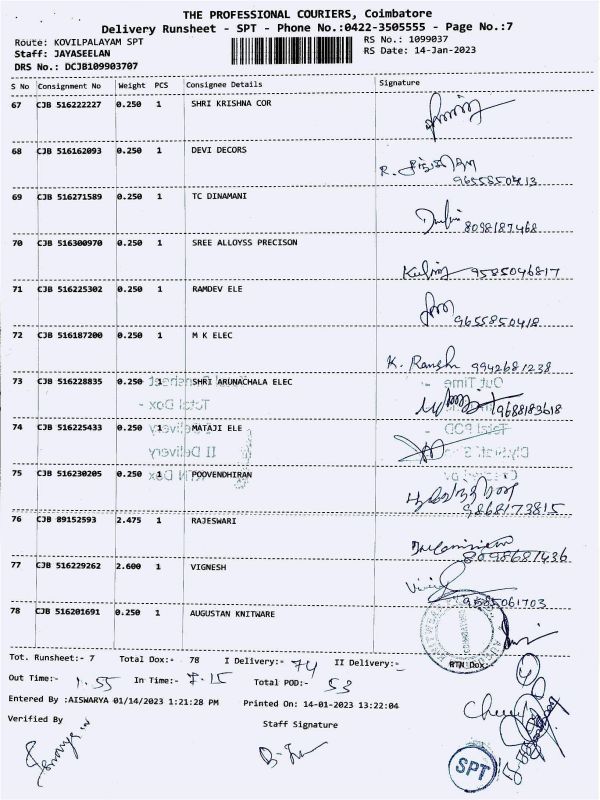 THE PROFESSIONAL COURIERS, Coimbatore
Delivery Runsheet - SPT - Phone No.:0422-3505555 - Page No.:7
Route: KOVILPALAYAM SPT
RS No.: 1099037
Staff: JAYASEELAN
RS Date: 14-Jan-2023
DRS No.: DCJB109903707
S No Consignment No Weight PCS Consignee Details Signature
67 CJB 516222227 0.250 1 SHRI KRISHNA COR
68 CJB 516162093 0.250 1 DEVI DECORS
9655850413
69 CJB 516271589 0.250 1 TC DINAMANI
8098187468
70 CJB 516300970 0.250 1 SREE ALLOYSS PRECISON
9585046817
71 CJB 516225302 0.250 1 RAMDEV ELE
9655850418
72 CJB 516187200 0.250 1 M K ELEC
9942681238
73 CJB 516228835 0.250 1 SHRI ARUNACHALA ELEC
9688183618
74 CJB 516225433 0.250 1 MATAJI ELE
75 CJB 516230205 0.250 1 POOVENDHIRAN
9868173815
76 CJB 89152593 2.475 1 RAJESWARI
8098687436
77 CJB 516229262 2.600 1 VIGNESH
9585061703
78 CJB 516201691 0.250 1 AUGUSTAN KNITWARE
Tot. Runsheet:- 7 Total Dox:- 78 I Delivery:- 74 II Delivery:- RTN Dox:-
Out Time:- 1.55 In Time:- 8.15 Total POD:- 53
Entered By :AISWARYA 01/14/2023 1:21:28 PM Printed On: 14-01-2023 13:22:04
Verified By Staff Signature
SPT